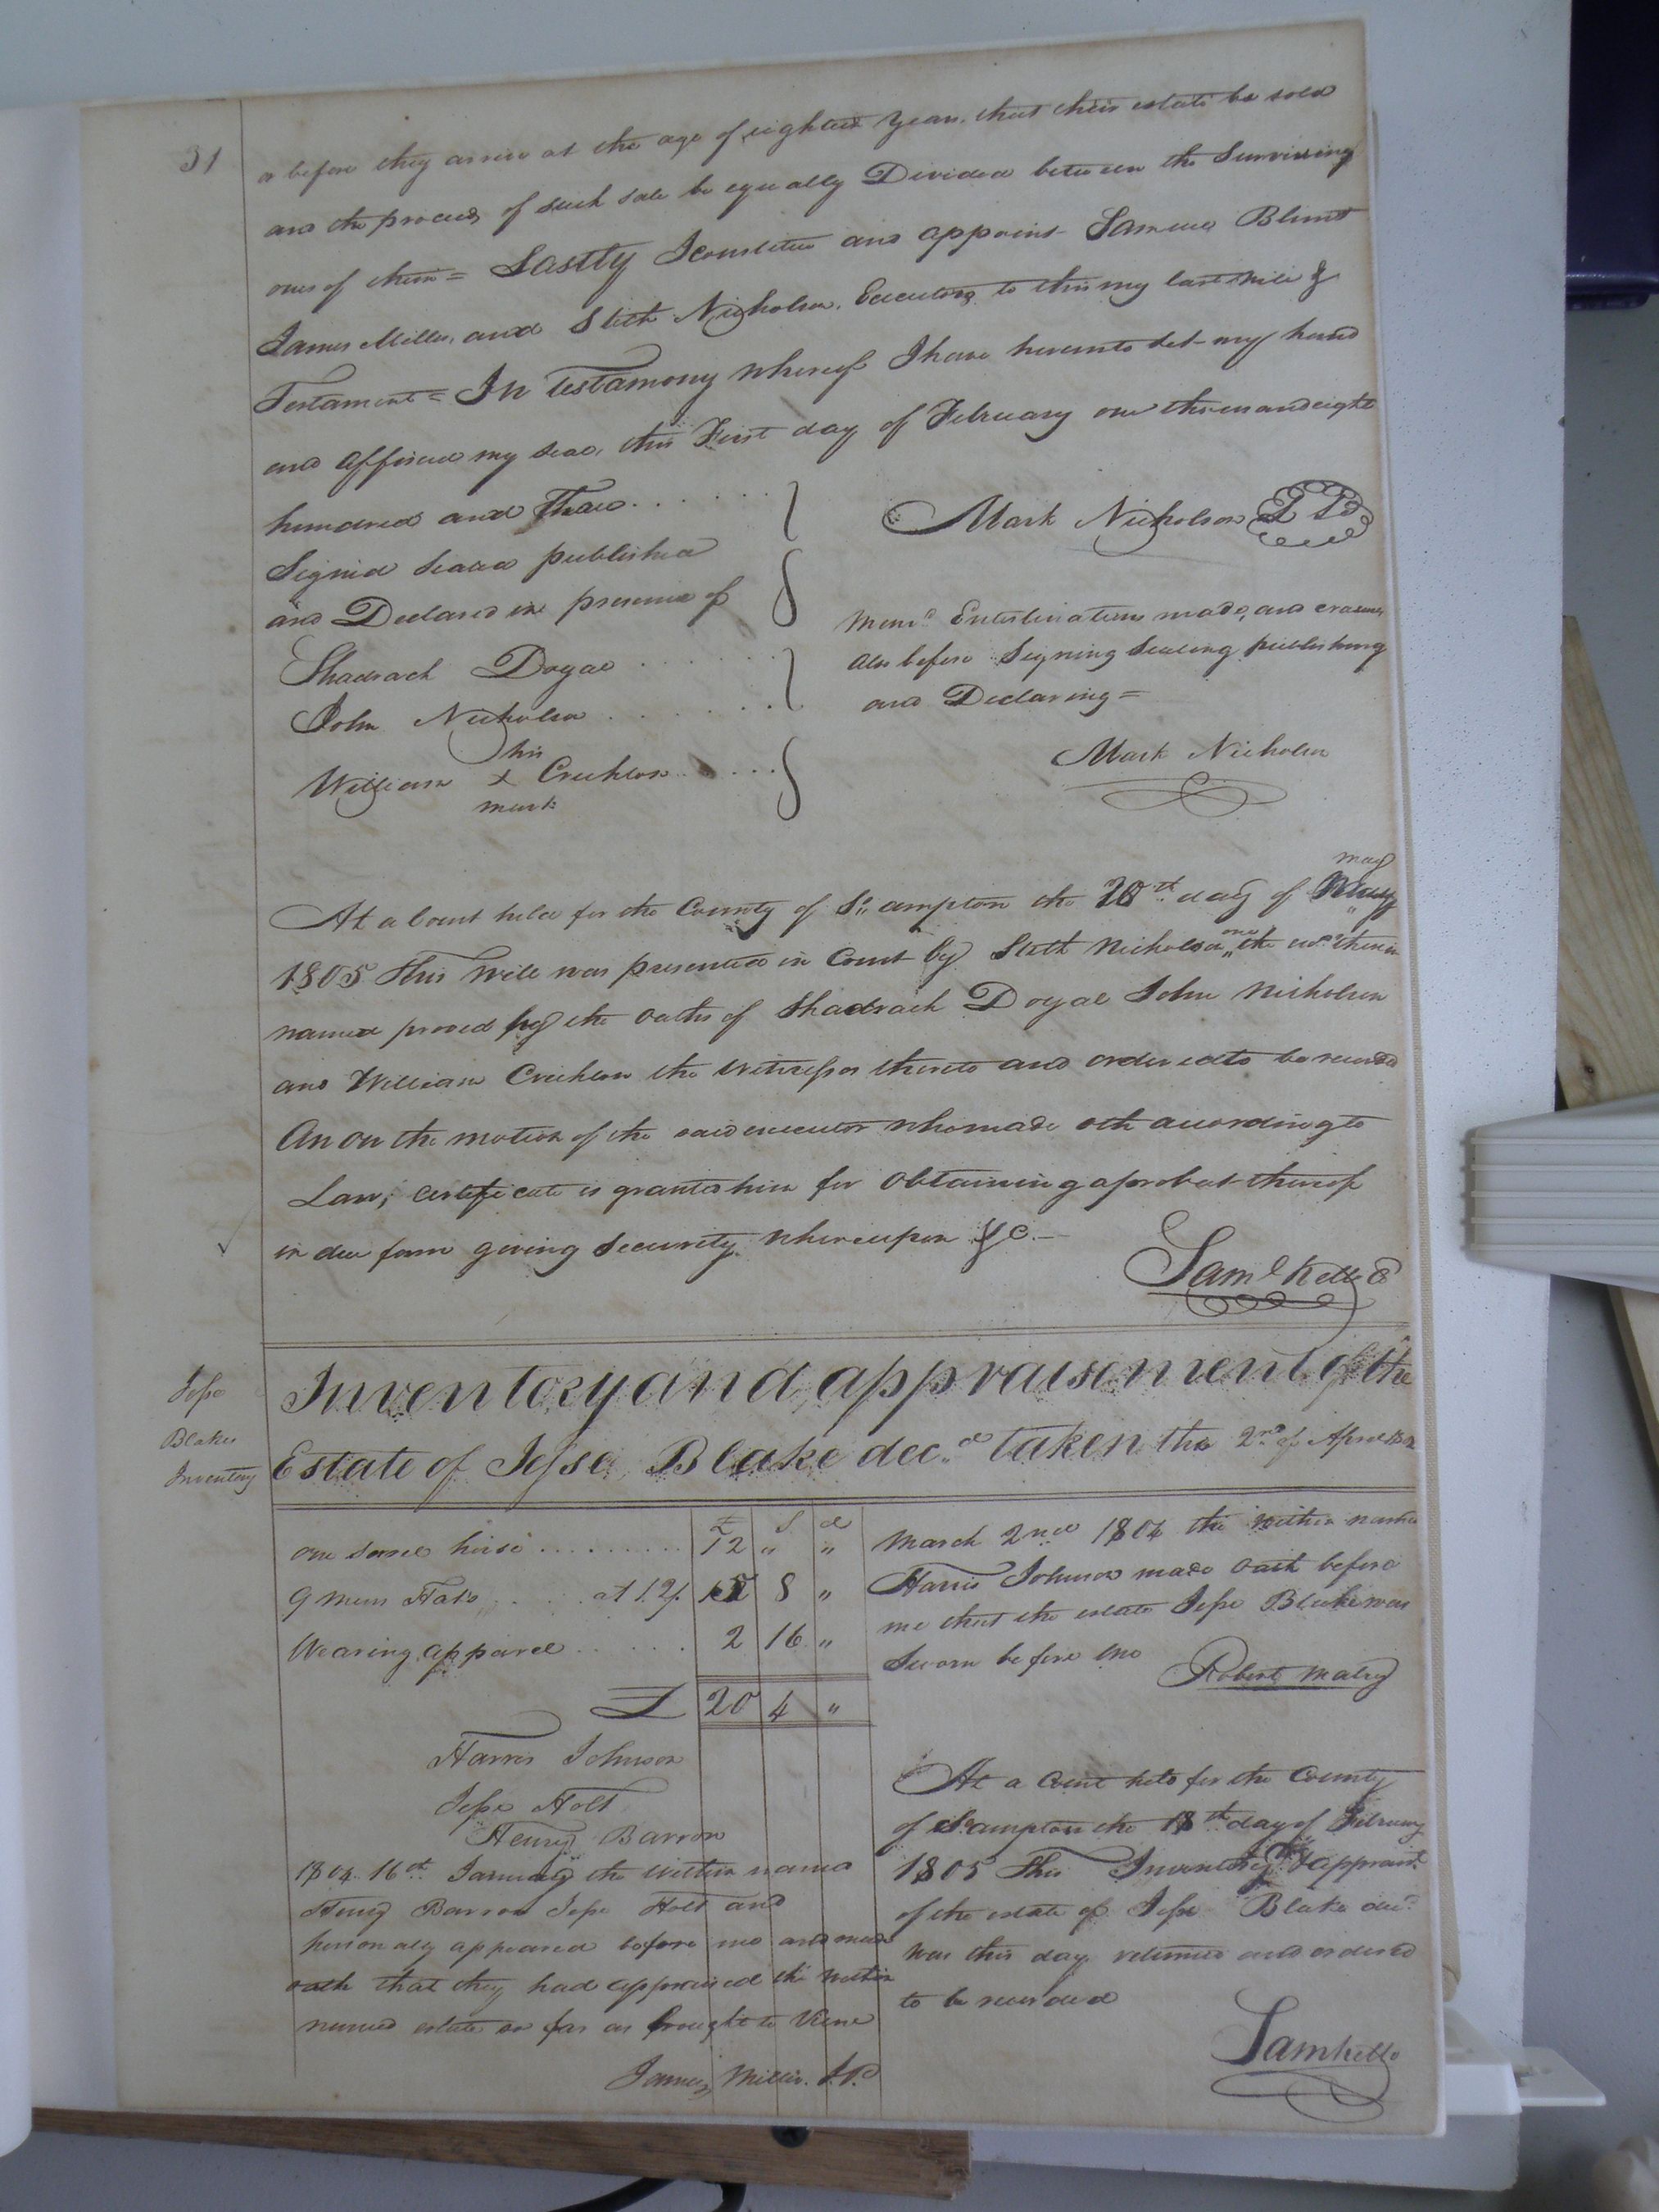 31
or before they arrive at the age of eighteen years. that their estate be sold
and the proceeds of such sale be equally Divided between the Surviving
ones of them = Lastly I constitute and appoint Samuel Blunt
James Miller, and Stith Nicholson. Executors to this my last Will &
Testament = In Testamony whereof I have hereunto set my hand
and affixed my seal, this First day of February one thousand eight
hundred and Three.......
Mark Nicholson L S
Signed Sealed published
and Declared in presence of
Memd. Enterlinations made, and erasures
also before Signing Sealing publishing
and Declaring =
Mark Nicholson
Shadrach Doyal.......
John Nicholson.......
his
William x Crichlow.......
mark
may
At a Court held for the County of So,, ampton the 20th day of May
1805 This Will was presented in Court by Stith Nicholson one the exr. therein
named proved by the oaths of Shadrach Doyal John Nicholson
and William Crichlow the Witnesses thereto and ordered to be recorded
An on the motion of the said executor who made oth according to
Law, certificate is granted him for obtaining a probat thereof
in due form giving Security whereupon &c. —
Saml Kello C
Jesse
Blakes
Inventory
Inventory and appraisement of the
Estate of Jesse Blake decd. taken the 2nd of April
£ S d
one sorrel horse......... 12 " "
9 Mens Hats..... at 12/. 5 8 "
Wearing apparel...... 2 16 "
£ 20 4 "
Harris Johnson
Jesse Holt
Henry Barron
1804 16th January the within named
Henry Barron Jesse Holt and
personally appeared before me and made
oath that they had appraised the within
named estate so far as brought to View
James Miller. J.P.
March 2nd 1804 the within named
Harris Johnson made oath before
me that the estate Jesse Blake was
Sworn before me
Robert Mabry
At a Court held for the County
of So.ampton the 18th day of February
1805 This Inventory & appraist.
of the estate of Jesse Blake decd.
was this day returned and ordered
to be recorded
Sam Kello